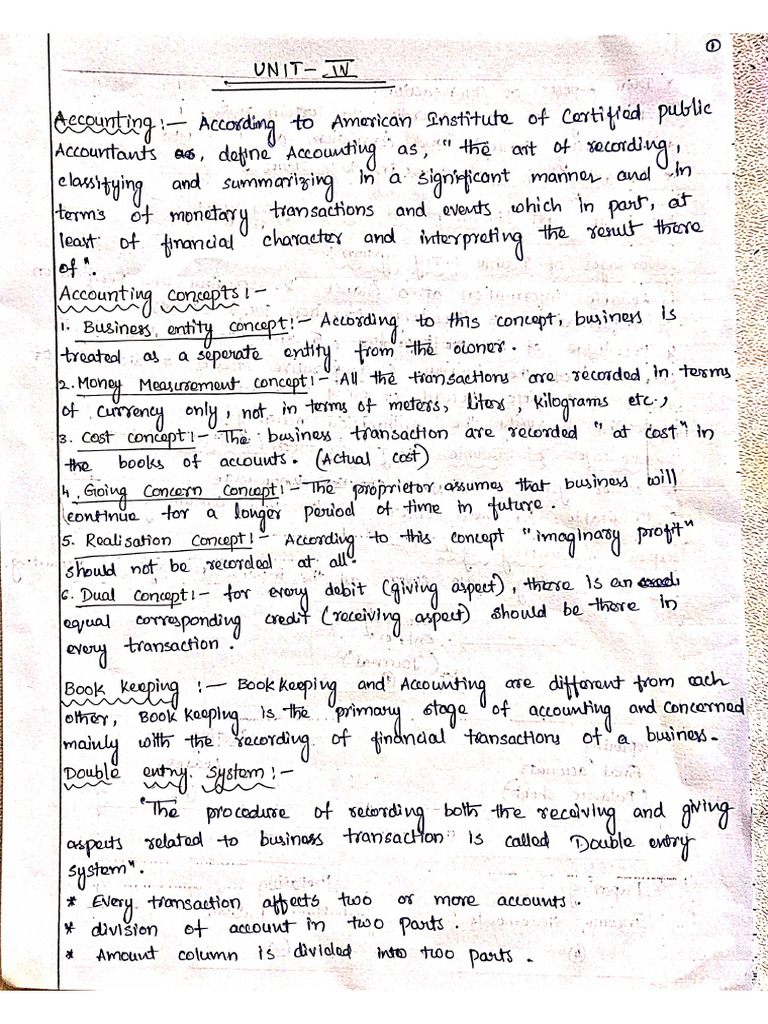 1
UNIT - IV
Accounting :- According to American Institute of Certified public
Accountants as, define Accounting as, "the art of recording,
classifying and summarizing in a significant manner and in
terms of monetary transactions and events which in part, at
least of financial character and interpreting the result there
of".
Accounting concepts :-
1. Business entity concept :- According to this concept, business is
treated as a seperate entity from the owner.
2. Money Measurement concept :- All the transactions are recorded in terms
of currency only, not in terms of meters, liters, kilograms etc.,
3. Cost concept :- The business transaction are recorded "at cost" in
the books of accounts. (Actual cost)
4. Going Concern Concept :- The proprietor assumes that business will
continue for a longer period of time in future.
5. Realisation Concept :- According to this concept "imaginary profit"
should not be recorded at all.
6. Dual concept :- for every debit (giving aspect), there is an
equal corresponding credit (receiving aspect) should be there in
every transaction.
Book keeping :- Book keeping and Accounting are different from each
other, Book keeping is the primary stage of accounting and concerned
mainly with the recording of financial transactions of a business.
Double entry System :-
"The procedure of recording both the receiving and giving
aspects related to business transaction" is called Double entry
system".
* Every transaction affects two or more accounts.
* division of account in two parts.
* Amount column is divided into two parts.